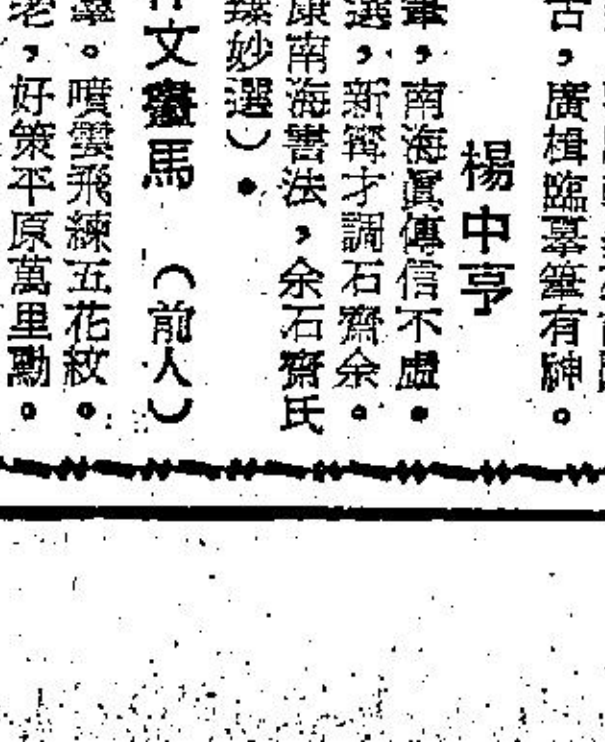 古，廣楫臨摹筆有神。
楊中亨
筆，南海眞傳信不虛。
選，新寄才調石齋余。
康南海書法，余石齋氏
臻妙選）。
文畫馬（前人）
羣。噴雲飛練五花紋。
老，好策平原萬里勳。